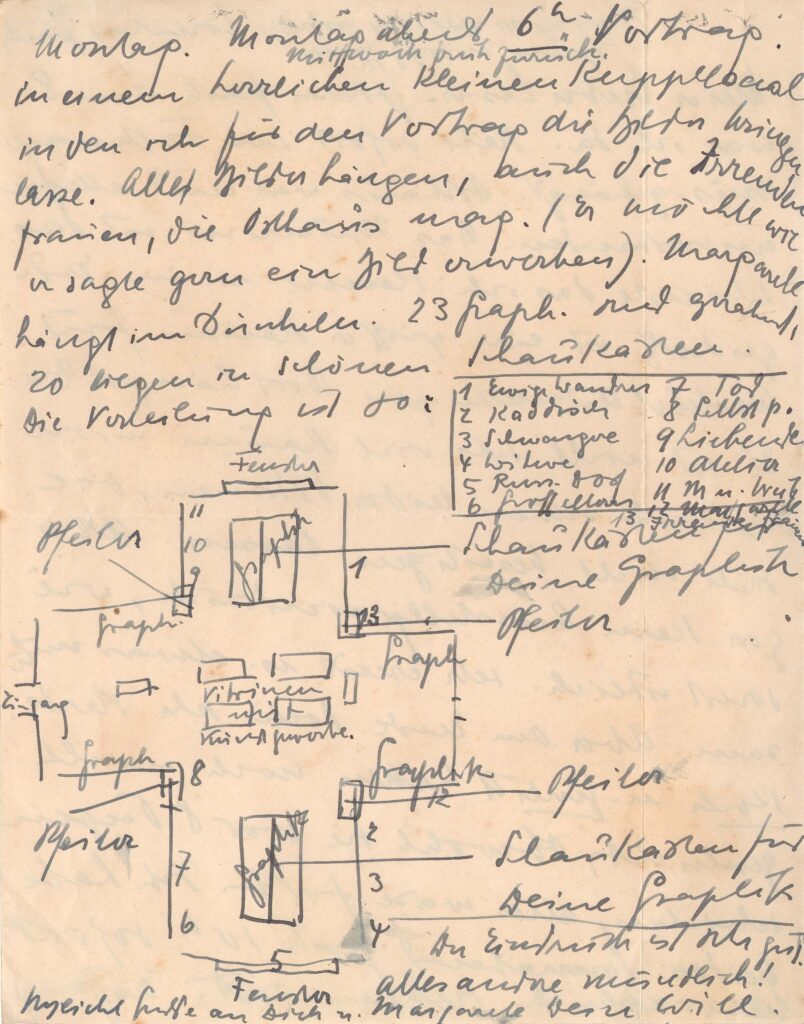 Montag. Montag abend 6 h Vortrag.
Mittwoch früh zurück.
in einem herrlichen kleinen Kuppelsaal
in den ich für den Vortrag die Bilder bringen
lasse. Alle Bilder hängen, auch die Irrenden
frauen, die Osthaus mag. (Er möchte wie
er sagte gern ein Bild erwerben). Margarete
hängt im Dunkeln. 23 Graph. sind gerahmt,
20 liegen in schönen Schaukästen.
Die Verteilung ist so:
1 Ewige Wandrer 7 Tod
2 Kaddisch 8 Selbstp.
3 Schwangre 9 Liebende
4 Witwe 10 Atelier
5 Russ. Dorf 11 M u. Weib
6 Großeltern 12 Margarete
13 Irrende Frauen
Fenster
11
10
9
Pfeiler
Graphik
1
Schaukästen für
Deine Graphik
13
Pfeiler
Graph.
Graph
Eingang
Vitrinen
mit
Kunstgewerbe.
Graph
8
Graphik
12
Pfeiler
Pfeiler
Graphik
2
7
3
Schaukasten für
Deine Graphik
6
4
5
Fenster
Der Eindruck ist sehr gut.
alles andre mündlich!
Herzlichst Grüsse an Dich u. Margarete Dein Will.